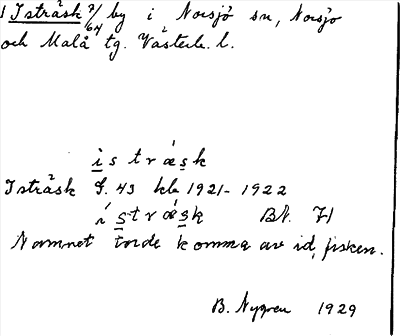 1 Isträsk 7/64 by i Norsjö sn, Norsjö
och Malå tg. Västerb. l.
istræsk
Isträsk S. 43 kbr 1921-1922
istræsk BN. 71
Namnet torde komma av id, fisken.
B. Nygren 1929